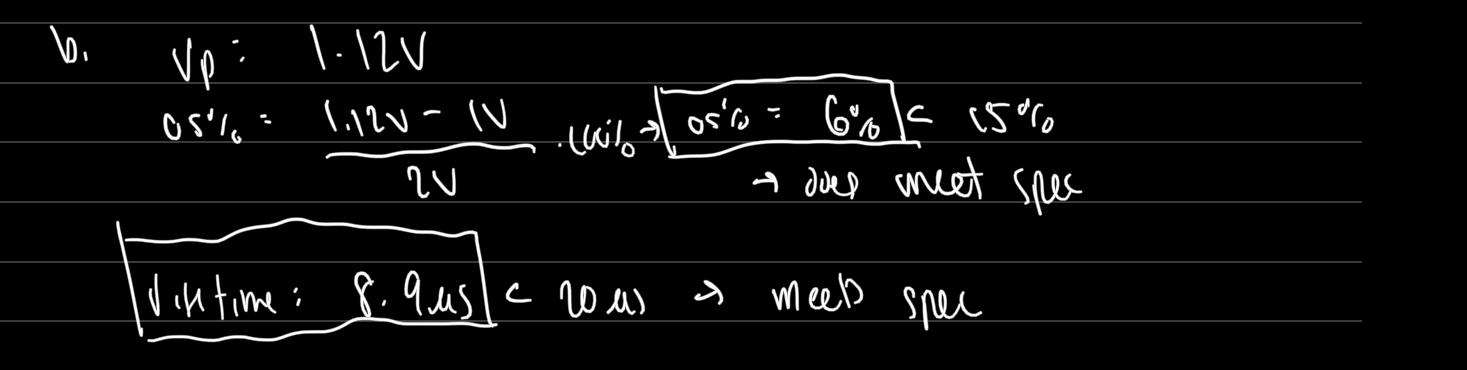 b. Vp: 1.12V
OS% = (1.12V - 1V) / 2V · 100% → OS% = 6% < 15%
→ does meet spec
risetime: 8.9 us < 20 us → meets spec